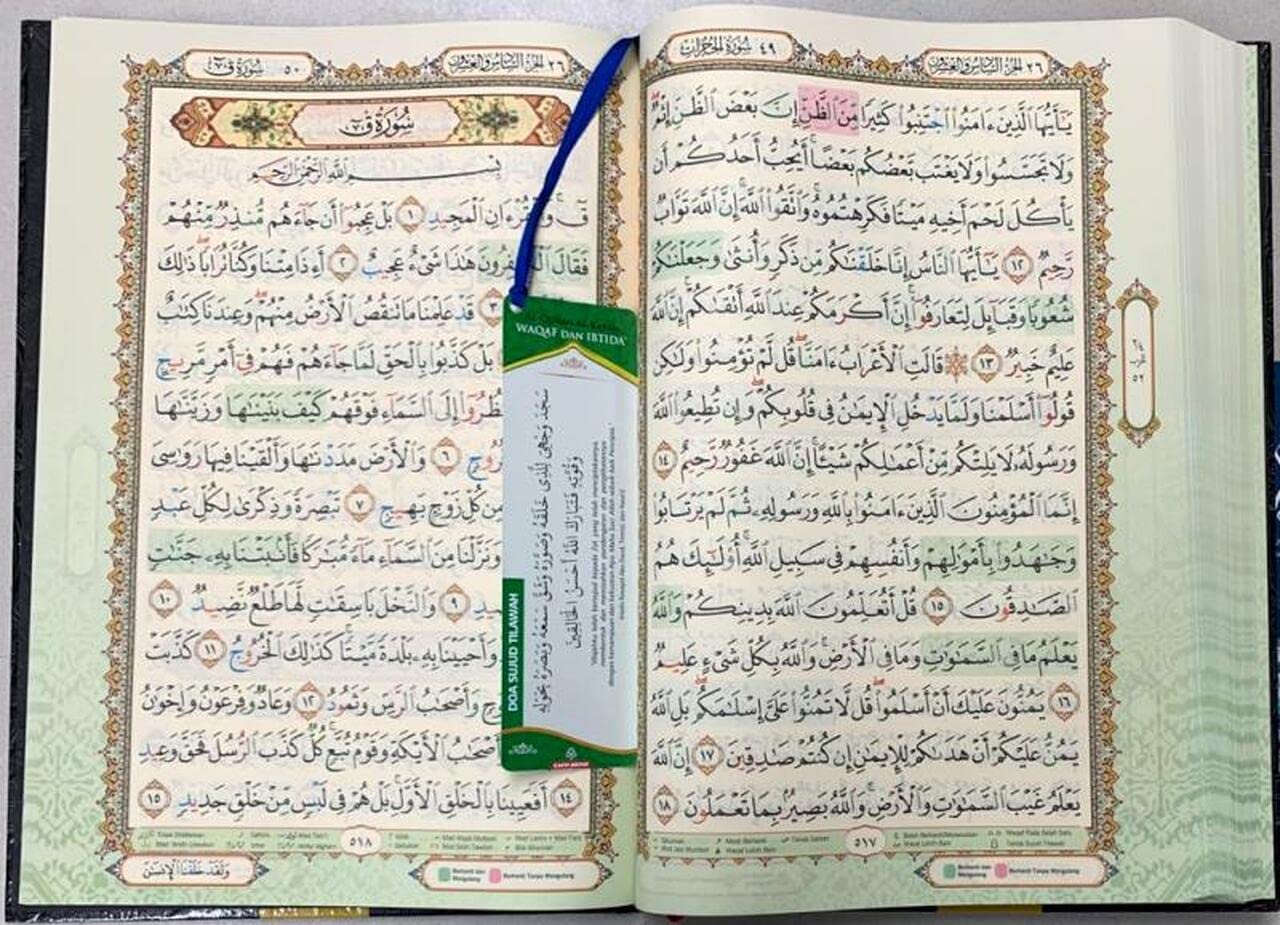 ٤٩ سُورَةُ الحُجُرَات
٢٦ الجُزءُ السَّادِسُ وَالعِشْرُون
يَٰٓأَيُّهَا ٱلَّذِينَ ءَامَنُوا۟ ٱجْتَنِبُوا۟ كَثِيرًا مِّنَ ٱلظَّنِّ إِنَّ بَعْضَ ٱلظَّنِّ إِثْمٌ
وَلَا تَجَسَّسُوا۟ وَلَا يَغْتَب بَّعْضُكُم بَعْضًا أَيُحِبُّ أَحَدُكُمْ أَن
يَأْكُلَ لَحْمَ أَخِيهِ مَيْتًا فَكَرِهْتُمُوهُ وَٱتَّقُوا۟ ٱللَّهَ إِنَّ ٱللَّهَ تَوَّابٌ
رَّحِيمٌ ١٢ يَٰٓأَيُّهَا ٱلنَّاسُ إِنَّا خَلَقْنَٰكُم مِّن ذَكَرٍ وَأُنثَىٰ وَجَعَلْنَٰكُمْ
شُعُوبًا وَقَبَآئِلَ لِتَعَارَفُوٓا۟ إِنَّ أَكْرَمَكُمْ عِندَ ٱللَّهِ أَتْقَىٰكُمْ إِنَّ ٱللَّهَ
عَلِيمٌ خَبِيرٌ ١٣ قَالَتِ ٱلْأَعْرَابُ ءَامَنَّا قُل لَّمْ تُؤْمِنُوا۟ وَلَٰكِن
قُولُوٓا۟ أَسْلَمْنَا وَلَمَّا يَدْخُلِ ٱلْإِيمَٰنُ فِى قُلُوبِكُمْ وَإِن تُطِيعُوا۟ ٱللَّهَ
وَرَسُولَهُۥ لَا يَلِتْكُم مِّنْ أَعْمَٰلِكُمْ شَيْـًٔا إِنَّ ٱللَّهَ غَفُورٌ رَّحِيمٌ ١٤
إِنَّمَا ٱلْمُؤْمِنُونَ ٱلَّذِينَ ءَامَنُوا۟ بِٱللَّهِ وَرَسُولِهِۦ ثُمَّ لَمْ يَرْتَابُوا۟
وَجَٰهَدُوا۟ بِأَمْوَٰلِهِمْ وَأَنفُسِهِمْ فِى سَبِيلِ ٱللَّهِ أُو۟لَٰٓئِكَ هُمُ
ٱلصَّٰدِقُونَ ١٥ قُلْ أَتُعَلِّمُونَ ٱللَّهَ بِدِينِكُمْ وَٱللَّهُ
يَعْلَمُ مَا فِى ٱلسَّمَٰوَٰتِ وَمَا فِى ٱلْأَرْضِ وَٱللَّهُ بِكُلِّ شَىْءٍ عَلِيمٌ
١٦ يَمُنُّونَ عَلَيْكَ أَنْ أَسْلَمُوا۟ قُل لَّا تَمُنُّوا۟ عَلَىَّ إِسْلَٰمَكُم بَلِ ٱللَّهُ
يَمُنُّ عَلَيْكُمْ أَنْ هَدَىٰكُمْ لِلْإِيمَٰنِ إِن كُنتُمْ صَٰدِقِينَ ١٧ إِنَّ ٱللَّهَ
يَعْلَمُ غَيْبَ ٱلسَّمَٰوَٰتِ وَٱلْأَرْضِ وَٱللَّهُ بَصِيرٌۢ بِمَا تَعْمَلُونَ ١٨
٥١٧
Berhenti dan Mengulang
Berhenti Tanpa Mengulang
٥٠ سُورَةُ ق
٢٦ الجُزءُ السَّادِسُ وَالعِشْرُون
سُورَةُ ق
بِسْمِ ٱللَّهِ ٱلرَّحْمَٰنِ ٱلرَّحِيمِ
قٓ وَٱلْقُرْءَانِ ٱلْمَجِيدِ ١ بَلْ عَجِبُوٓا۟ أَن جَآءَهُم مُّنذِرٌ مِّنْهُمْ
فَقَالَ ٱلْكَٰفِرُونَ هَٰذَا شَىْءٌ عَجِيبٌ ٢ أَءِذَا مِتْنَا وَكُنَّا تُرَابًا ذَٰلِكَ
٣ قَدْ عَلِمْنَا مَا تَنقُصُ ٱلْأَرْضُ مِنْهُمْ وَعِندَنَا كِتَٰبٌ
بَلْ كَذَّبُوا۟ بِٱلْحَقِّ لَمَّا جَآءَهُمْ فَهُمْ فِىٓ أَمْرٍ مَّرِيجٍ
إِلَى ٱلسَّمَآءِ فَوْقَهُمْ كَيْفَ بَنَيْنَٰهَا وَزَيَّنَّٰهَا
٦ وَٱلْأَرْضَ مَدَدْنَٰهَا وَأَلْقَيْنَا فِيهَا رَوَٰسِىَ
مِن كُلِّ زَوْجٍۭ بَهِيجٍ ٧ تَبْصِرَةً وَذِكْرَىٰ لِكُلِّ عَبْدٍ
وَنَزَّلْنَا مِنَ ٱلسَّمَآءِ مَآءً مُّبَٰرَكًا فَأَنۢبَتْنَا بِهِۦ جَنَّٰتٍ
٩ وَٱلنَّخْلَ بَاسِقَٰتٍ لَّهَا طَلْعٌ نَّضِيدٌ ١٠
وَأَحْيَيْنَا بِهِۦ بَلْدَةً مَّيْتًا كَذَٰلِكَ ٱلْخُرُوجُ ١١ كَذَّبَتْ
وَأَصْحَٰبُ ٱلرَّسِّ وَثَمُودُ ١٢ وَعَادٌ وَفِرْعَوْنُ وَإِخْوَٰنُ
أَصْحَٰبُ ٱلْأَيْكَةِ وَقَوْمُ تُبَّعٍ كُلٌّ كَذَّبَ ٱلرُّسُلَ فَحَقَّ وَعِيدِ
١٤ أَفَعَيِينَا بِٱلْخَلْقِ ٱلْأَوَّلِ بَلْ هُمْ فِى لَبْسٍ مِّنْ خَلْقٍ جَدِيدٍ ١٥
٥١٨
وَلَقَدْ خَلَقْنَا ٱلْإِنسَٰنَ
Berhenti dan Mengulang
Berhenti Tanpa Mengulang
WAQAF DAN IBTIDA'
DOA SUJUD TILAWAH
سَجَدَ وَجْهِيَ لِلَّذِي خَلَقَهُ وَصَوَّرَهُ وَشَقَّ سَمْعَهُ وَبَصَرَهُ بِحَوْلِهِ
وَقُوَّتِهِ فَتَبَارَكَ اللهُ أَحْسَنُ الْخَالِقِينَ